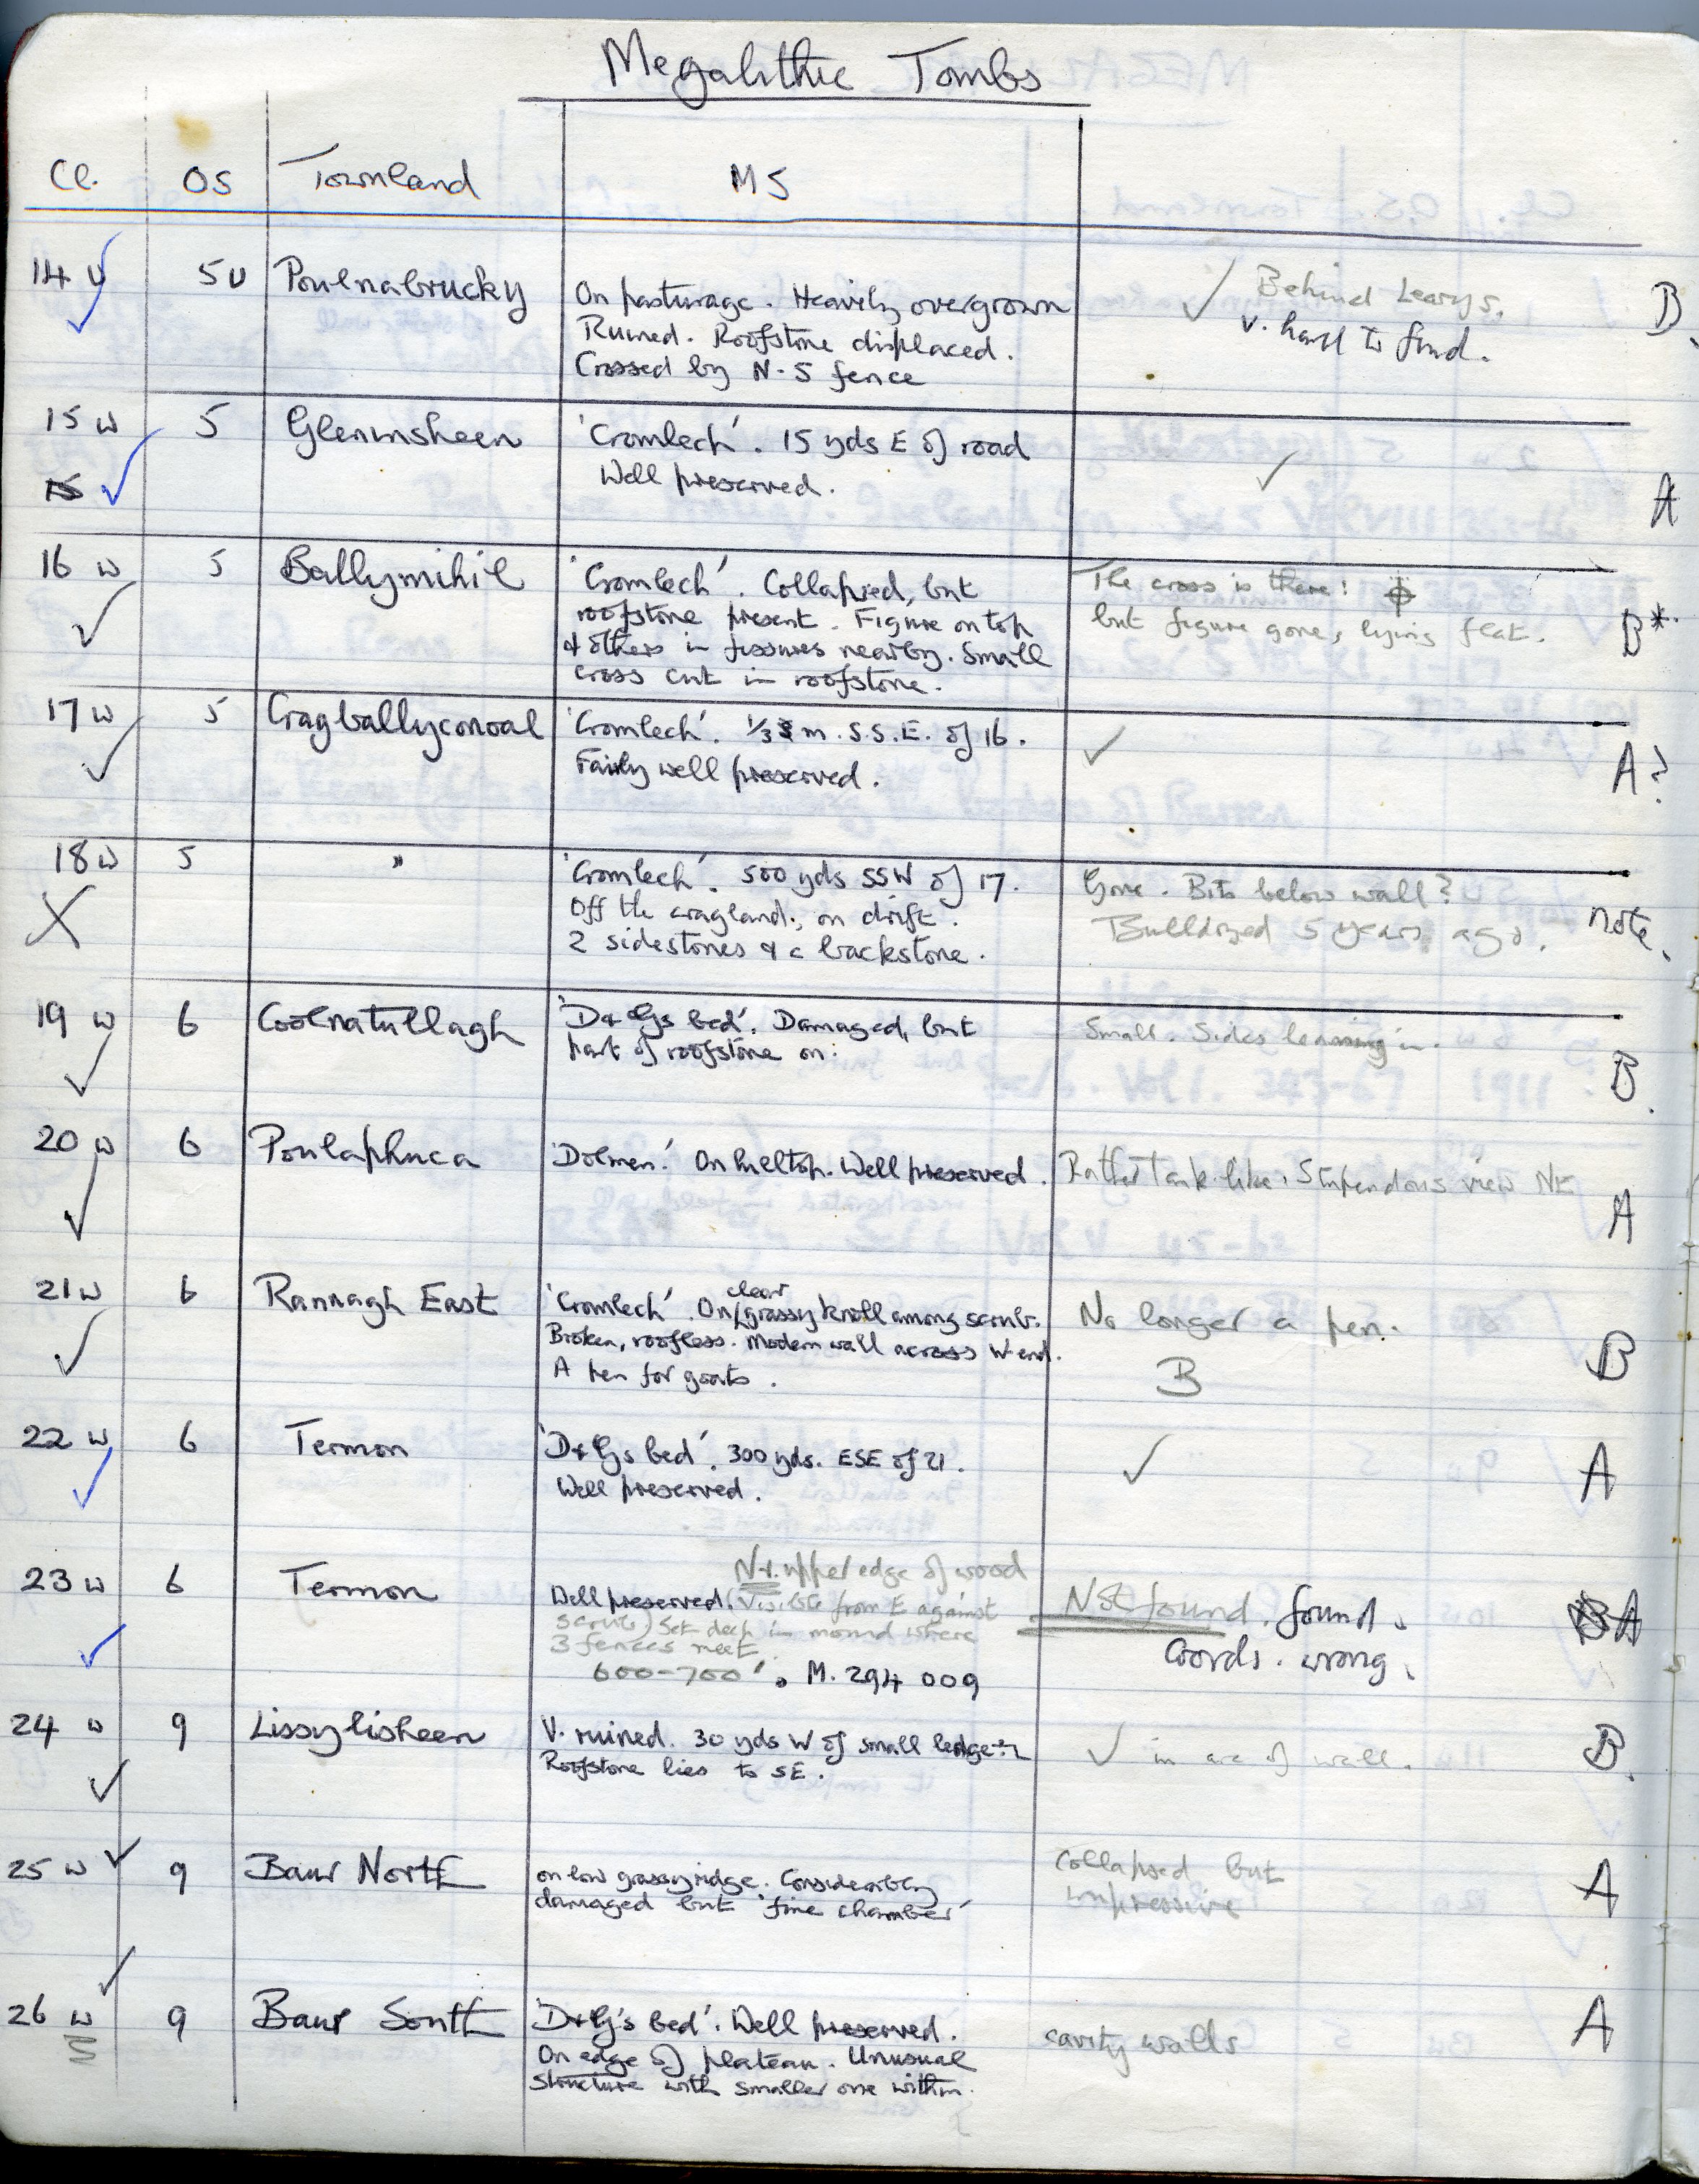 Megalithic Tombs
Cl. OS Townland MS
14 U 5U Poulnabrucky On pasturage. Heavily overgrown ✓ Behind Learys. B.
Ruined. Roofstone displaced. v. hard to find.
Crossed by N-S fence
✓
15 w 5 Gleninsheen 'Cromlech'. 15 yds E of road ✓
15 ✓ Well preserved. A
16 w 5 Ballymihil 'Cromlech'. Collapsed, but The cross is there!
roofstone present. Figure on top but figure gone, lying flat. B*
✓ & others in fissures nearby. Small
cross cut in roofstone.
17 w 5 Cragballyconoal 'Cromlech'. 1/3 m. S.S.E. of 16. ✓
✓ Fairly well preserved. A?
18 w 5 " 'Cromlech'. 500 yds SSW of 17. Gone. Bits below wall?
X Off the cragland, on drift. Bulldozed 5 years ago. note.
2 sidestones & a backstone.
19 w 6 Coolnatullagh 'D & G's bed'. Damaged, but Small. Sides leaning in.
✓ part of roofstone on. B.
20 w 6 Poulaphuca 'Dolmen.' On hilltop. Well preserved. Rather Tank-like. Stupendous view NE
✓ A
21 w 6 Rannagh East 'Cromlech'. On clear grassy knoll among scrub. No longer a pen.
✓ Broken, roofless. Modern wall across W end. B B
A pen for goats.
22 w 6 Termon 'D & G's bed'. 300 yds. ESE of 21. ✓ A
✓ Well preserved.
Nr. upper edge of wood
23 w 6 Termon Well preserved. (Visible from E against Not found. found. B A
✓ scrub) Set deep in mound where Coords. wrong.
3 fences meet.
600-700'. M. 294 009
24 w 9 Lissylisheen V. ruined. 30 yds W of small ✓ in arc of wall. B.
✓ Roofstone lies to SE.
25 w ✓ 9 Baur North on low grassy ridge. Considerably Collapsed but A
damaged but 'fine chamber' impressive
✓
26 w 9 Baur South 'D & G's bed'. Well preserved. cavity walls A
On edge of plateau. Unusual
structure with smaller one within.